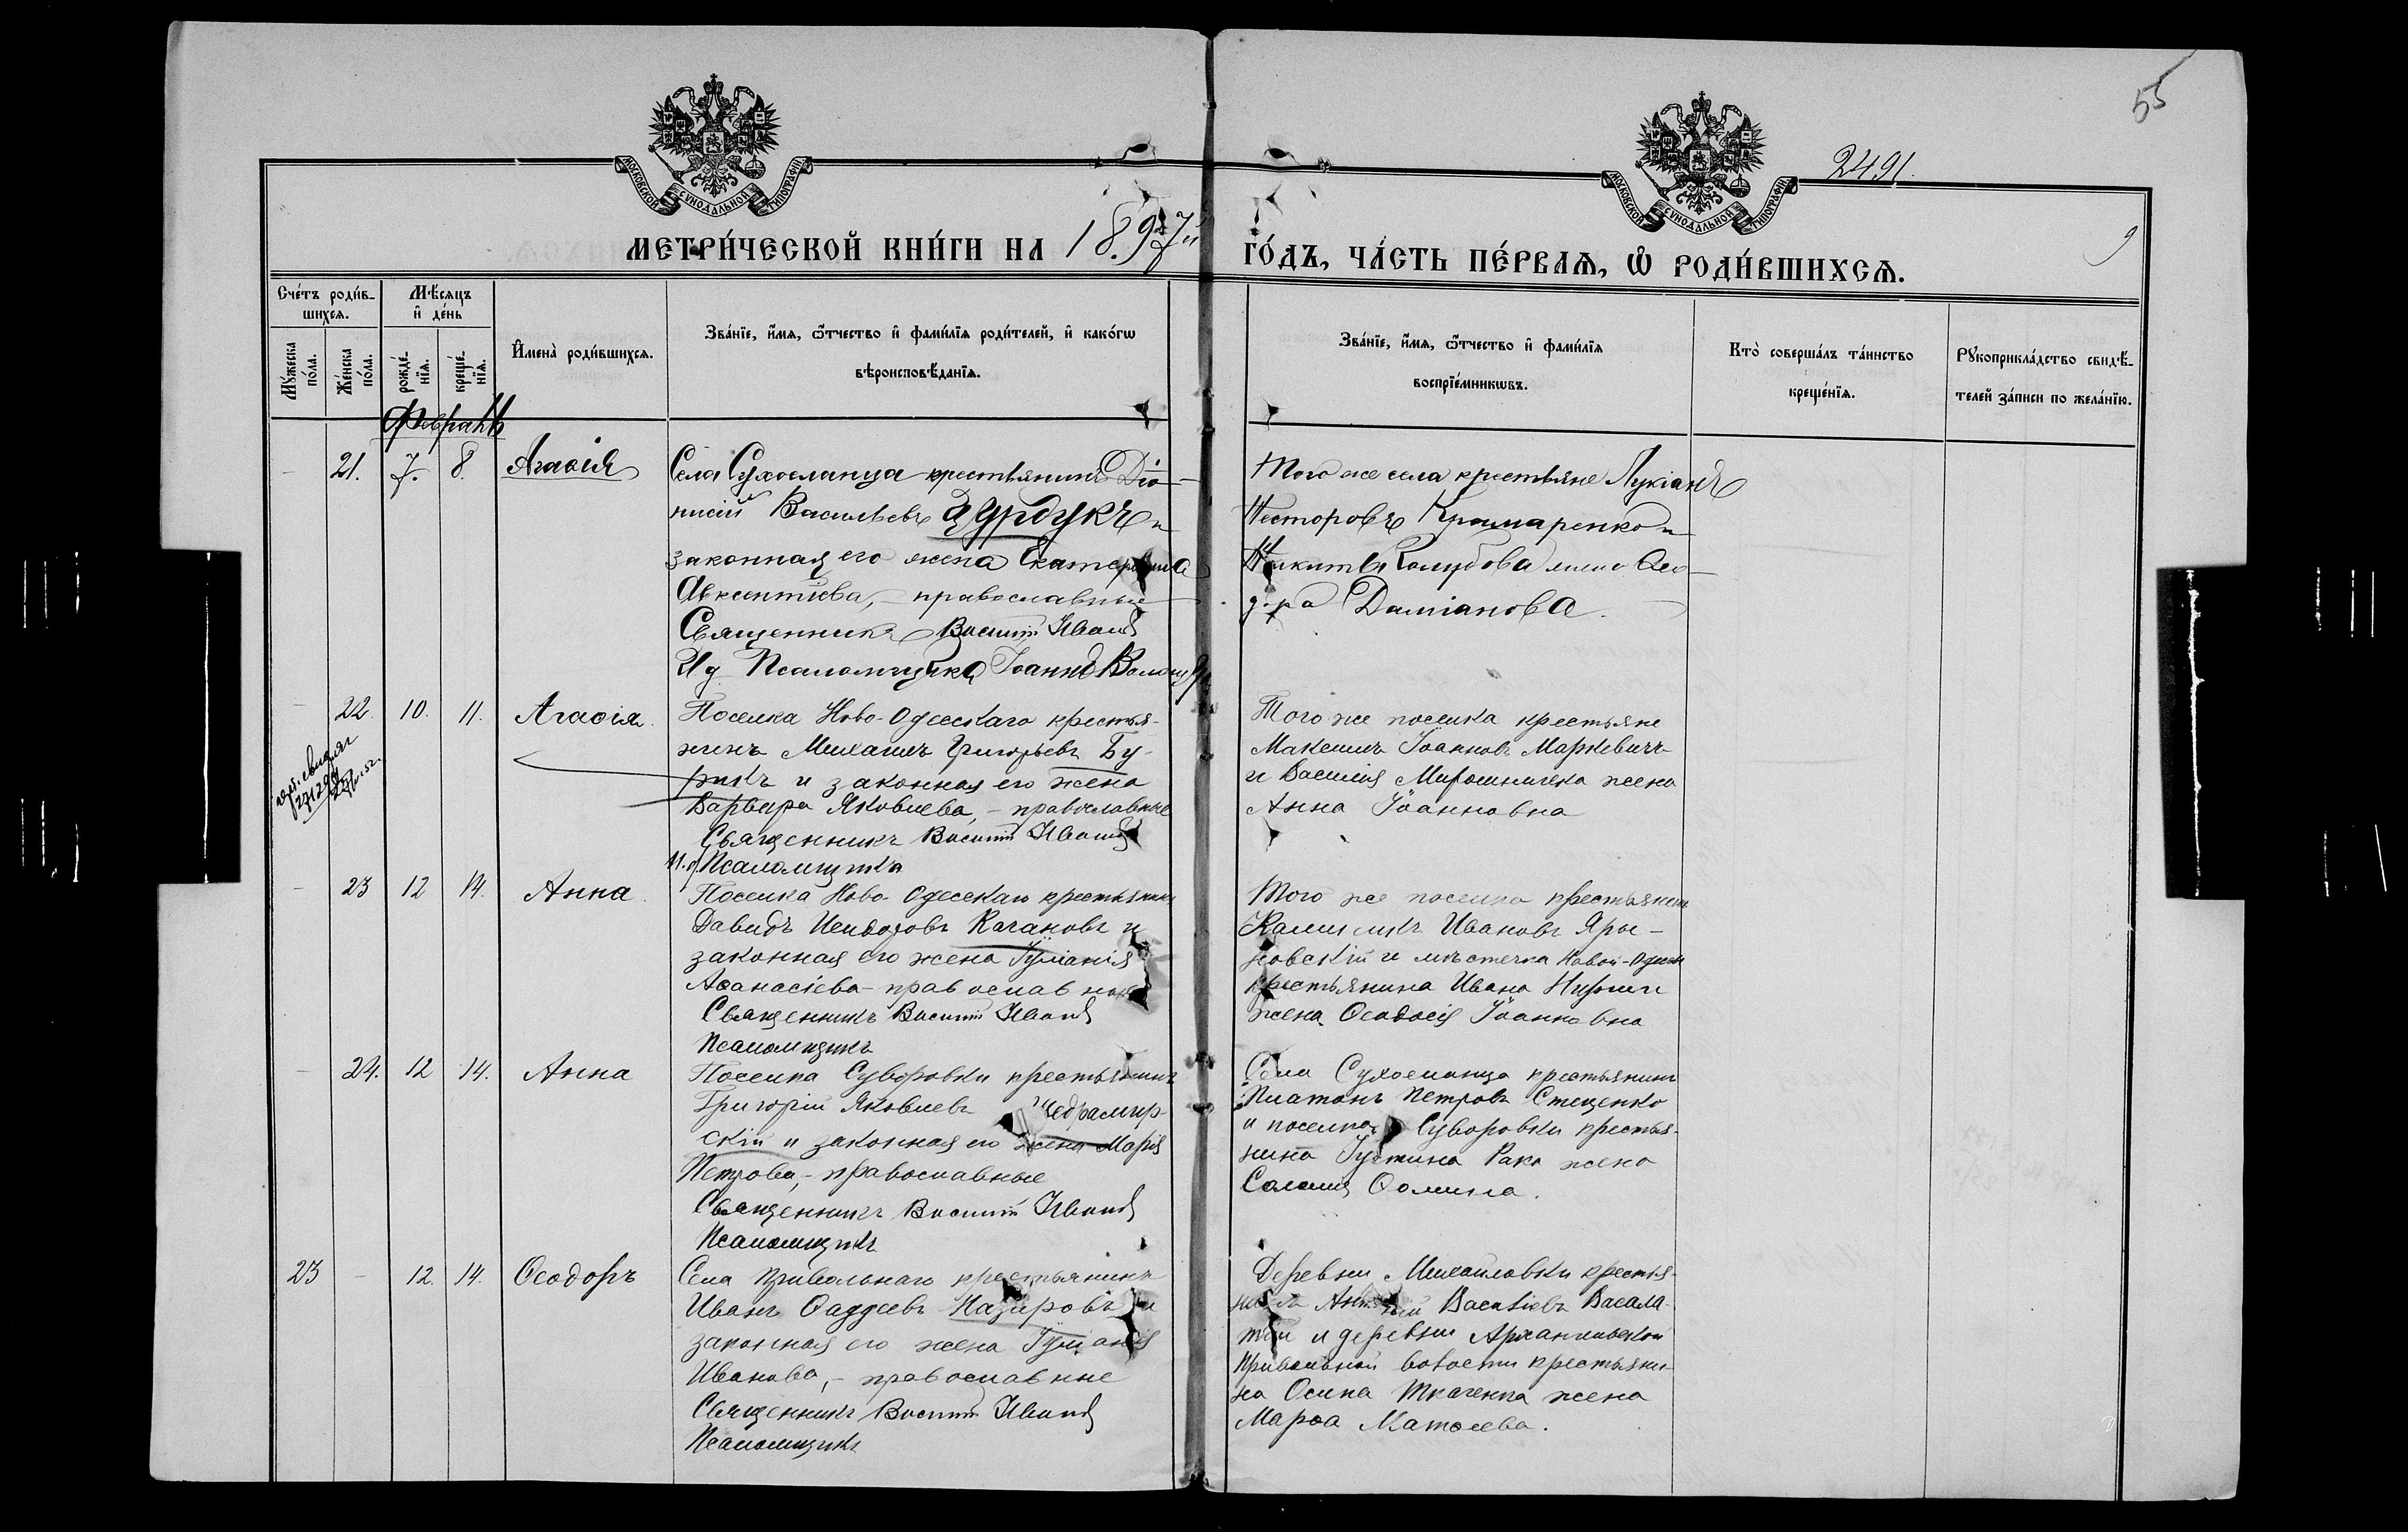 55
2491.
9
МОСКОВСКОЙ СѴНОДАЛЬНОЙ ТИПОГРАФІИ
МОСКОВСКОЙ СѴНОДАЛЬНОЙ ТИПОГРАФІИ
МЕТРИ́ЧЕСКОЙ КНИ́ГИ НА 1897й ГО́ДЪ, ЧА́СТЬ ПЕ́РВАѦ, Ѽ РОДИ́ВШИХСѦ.
Сче́тъ роди́в-
шихсѧ.
Мѣ́сяцъ
и҆ де́нь
Мꙋ́жеска по́ла.
Же́нска по́ла.
рожде́-
нїѧ.
креще́-
нїѧ.
И҆мена̀ роди́вшихсѧ.
Зва́нїе, и҆́мѧ, ѻ҆́тчество и҆ фами́лїѧ роди́телей, и҆ како́гѡ
вѣроисповѣ́данїѧ.
Зва́нїе, и҆́мѧ, ѻ҆́тчество и҆ фами́лїѧ
воспрїе́мникѡвъ.
Кто̀ соверша́лъ та́инство
креще́нїѧ.
Рꙋкоприкла́дство свидѣ́-
телей за́писи по жела́нїю.
Февраль
21. 7. 8. Агаѳія
Села Сухоеланца крестьянинъ Діо-
нисій Васильевъ Цурдукъ и
законная его жена Екатерина
Авксентіева, – православные
Священникъ Василій
И д Псаломщика Іоаннъ
Того же села крестьяне Лукіанъ
Несторовъ Крамаренко и
Никиты жена Ѳео-
дора Даміанова.
22. 10. 11. Агаѳія.
Поселка Ново-Одесскаго крестья-
нинъ Михаилъ Григорьевъ Бу-
рикъ и законная его жена
Варвара Яковлева, – православные
Священникъ Василій
И. д. Псаломщика
Того же поселка крестьяне
Максимъ Іоанновъ Маркевичъ
и Василія Мирошничека жена
Анна Іоанновна
23 12 14. Анна.
Поселка Ново-Одесскаго крестьянинъ
Давидъ Исидоровъ Качановъ и
законная его жена Іуліанія
Аѳанасіева – православные
Священникъ Василій
Псаломщикъ
Того же поселка крестьянинъ
Ивановъ Яры-
новскій и мѣстечка Новой-Одессы
крестьянина Ивана
жена Ѳеодосія Іоанновна
24. 12 14. Анна
Поселка Суворовки крестьянинъ
Григорій Яковлевъ Щедрамир-
скій и законная его жена Марія
Петрова, – православные
Священникъ Василій
Псаломщикъ
Села Сухоеланца крестьянинъ
Платонъ Петровъ Стеценко
и поселка Суворовки крестья-
нина Іустина Рака жена
Саломія Ѳомина.
23 – 12. 14. Ѳеодоръ
Села Привольнаго крестьянинъ
Иванъ Ѳаддеевъ Назаровъ и
законная его жена Іуліанія
Иванова, – православные
Священникъ Василій
Псаломщикъ
Деревни Михайловки крестья-
нинъ Васильевъ Васала-
тій и деревни Архангельской
Привольной волости крестьяни-
на Осипа Ткаченка жена
Марѳа Матѳеева.